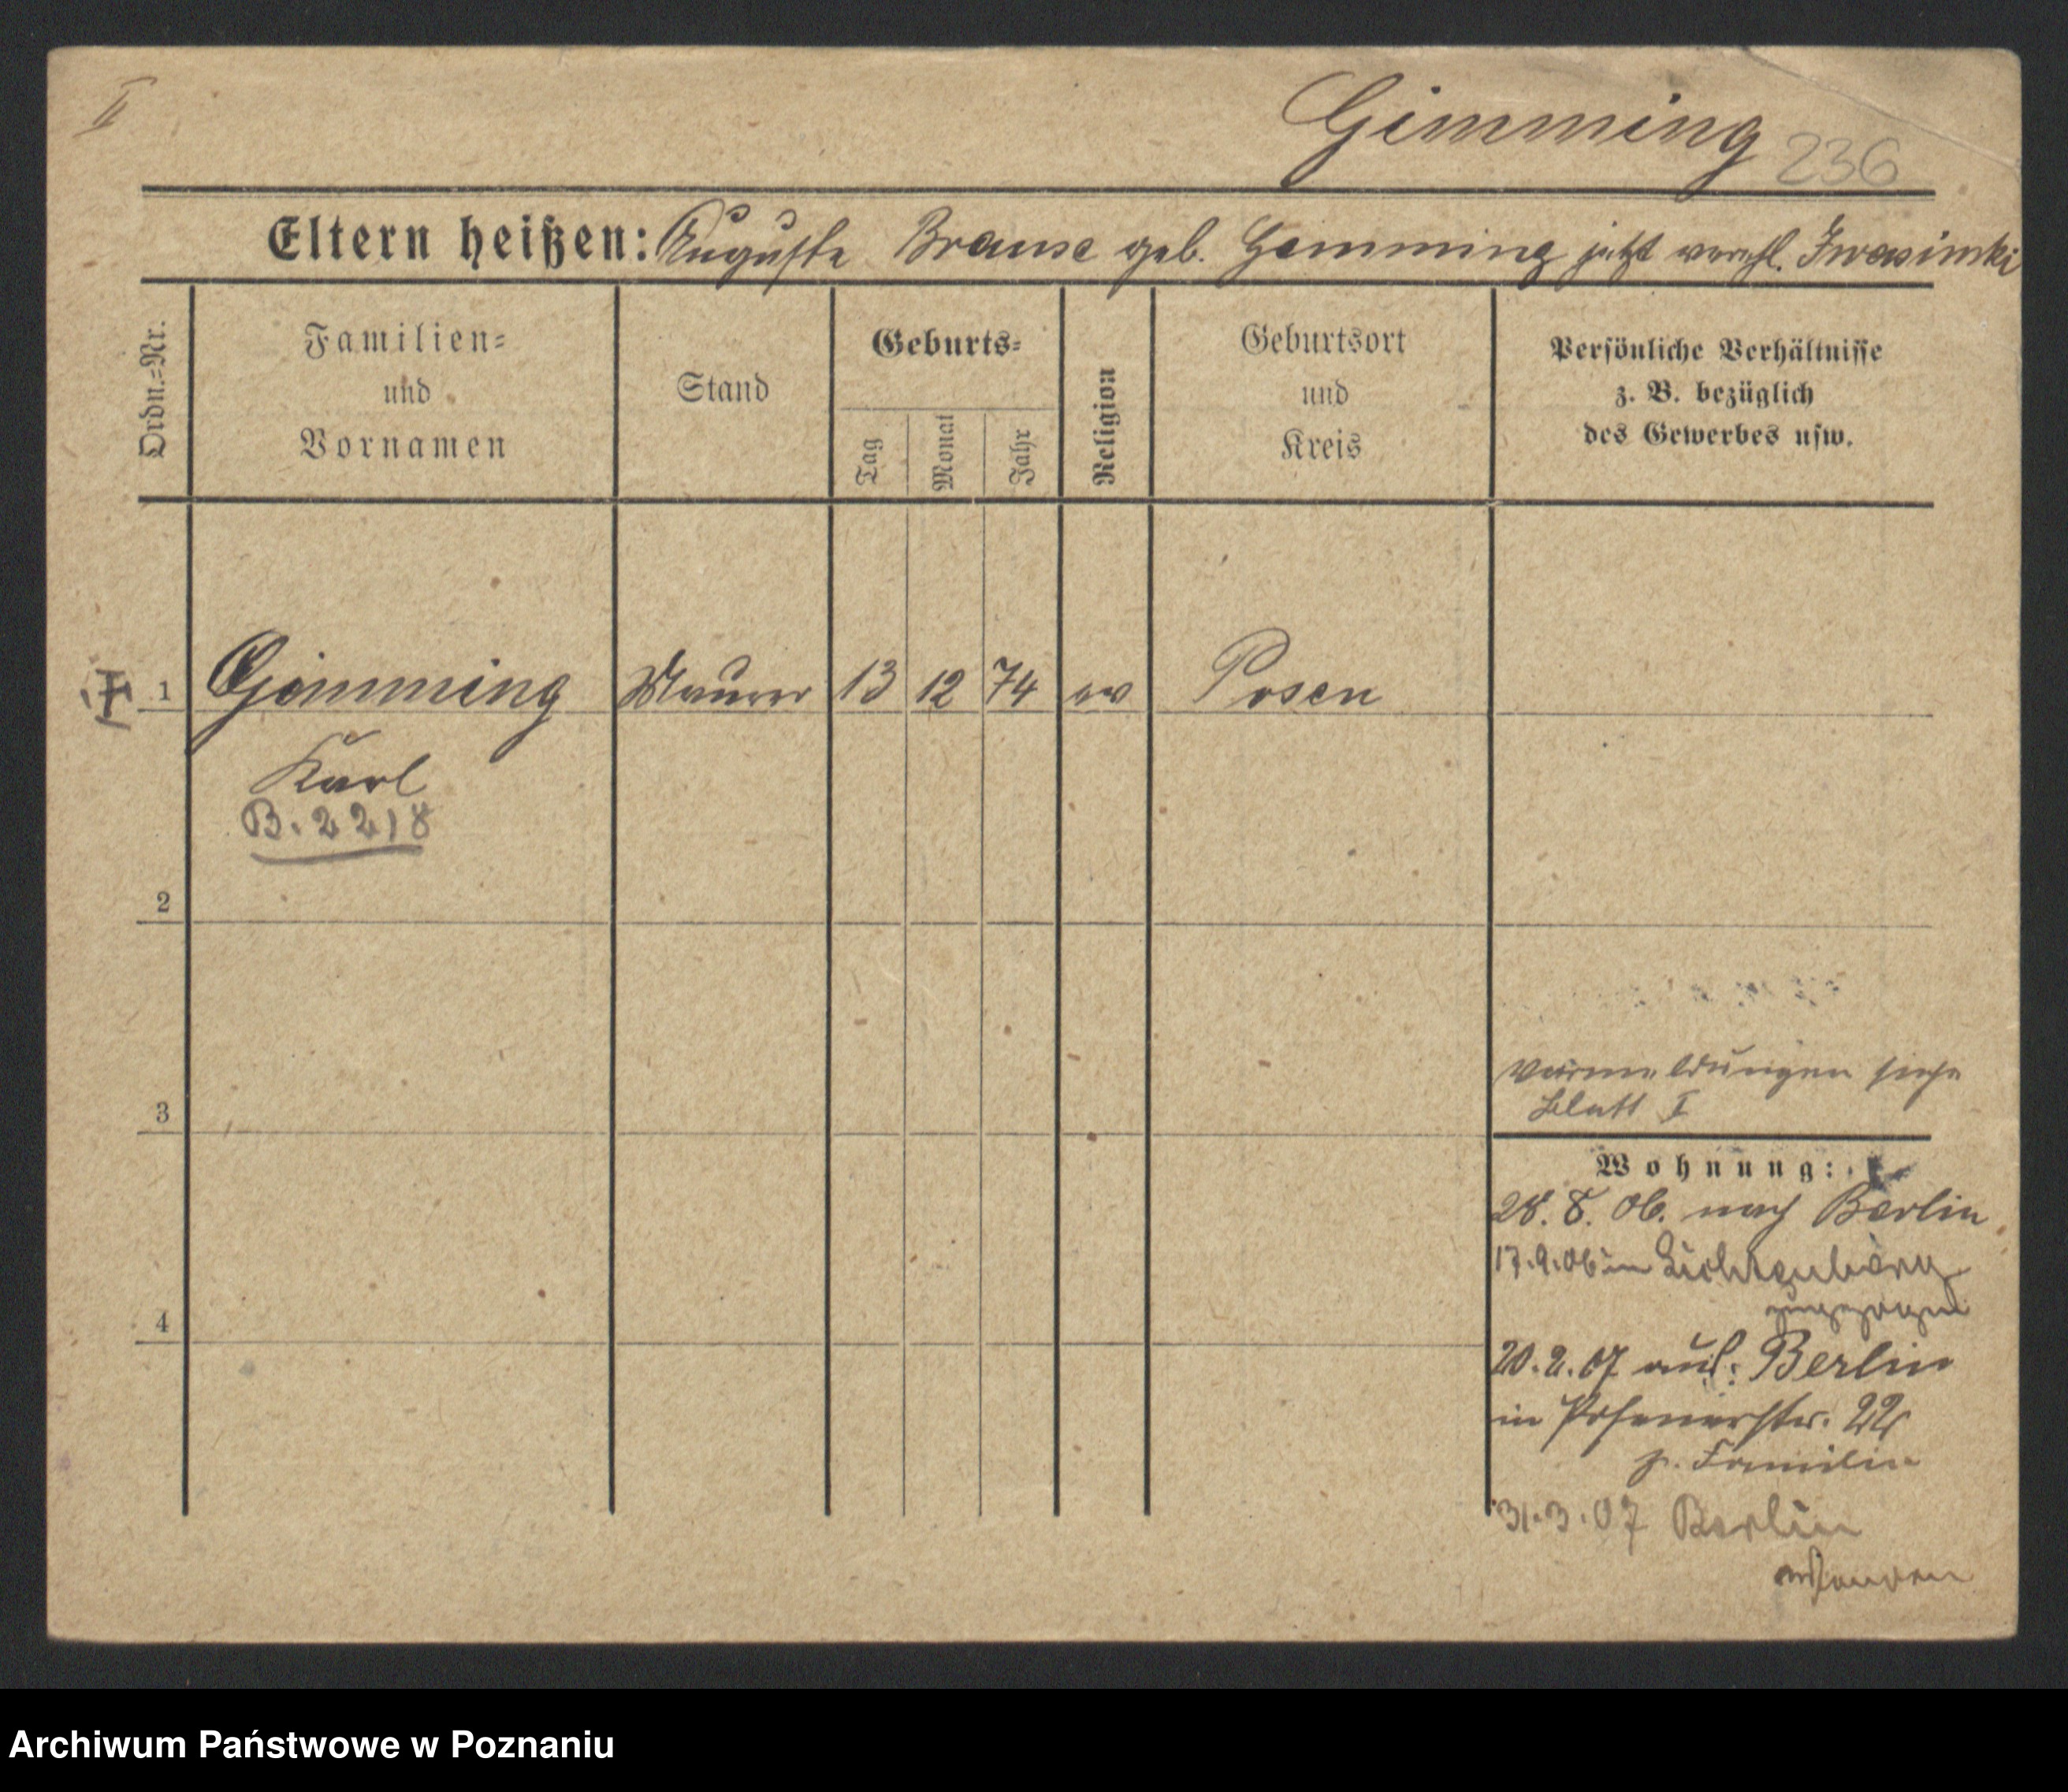 II
Gimming
236
Eltern heißen: Auguste Brause geb. Gemming jetzt verehl. Iwasinski
Ordn.=Nr.
Familien=
und
Vornamen
Stand
Geburts=
Tag
Monat
Jahr
Religion
Geburtsort
und
Kreis
Persönliche Verhältnisse
z. B. bezüglich
des Gewerbes usw.
1 Gimming Maurer 13 12 74 ev Posen
Karl
B. 2218
2
3
Vormeldungen siehe
Blatt I
Wohnung:
28. 8. 06. nach Berlin
17.9.06 in Lichtenberg
zugezogen
4
20.2.07 aus: Berlin
in Posenerstr. 22
z. Familie
31.3.07 Berlin
Archiwum Państwowe w Poznaniu